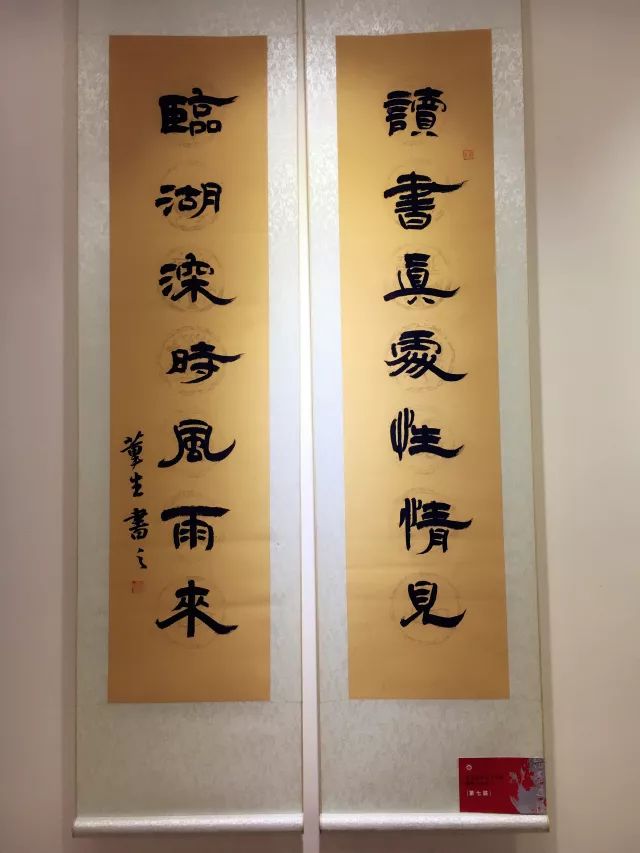 讀書真處性情見
臨湖深時風雨來
董生書之
(第七屆)